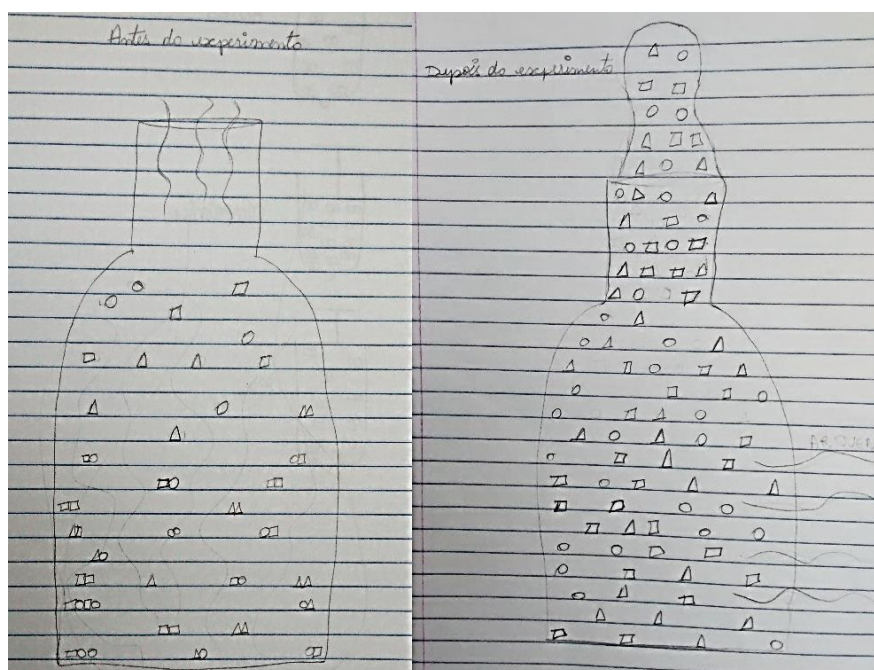 Antes do experimento
Depois do experimento